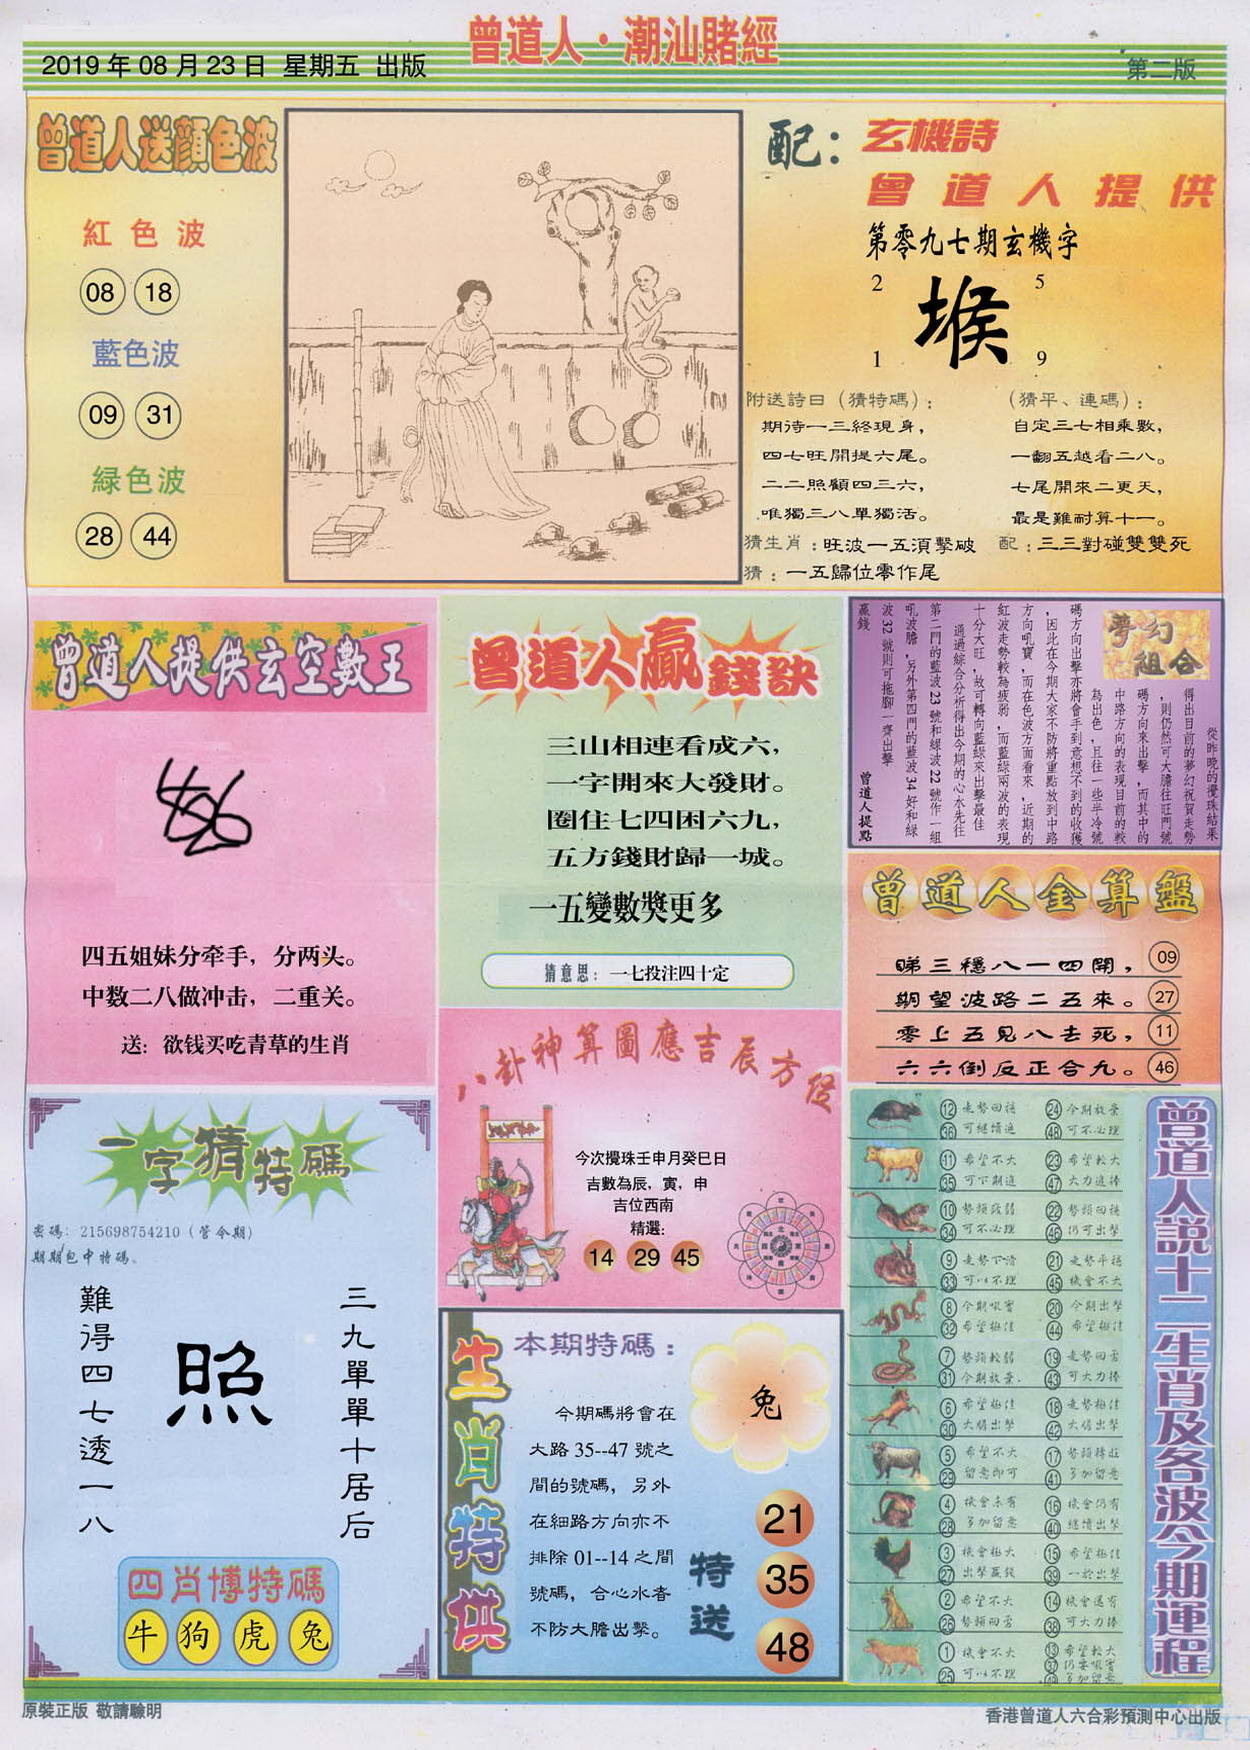 曾道人·潮汕賭經
2019年08月23日 星期五 出版
第二版
曾道人送顔色波
紅色波
08 18
藍色波
09 31
緑色波
28 44
配：玄機詩
曾道人提供
第零九七期玄機字
2 5
堠
1 9
附送詩曰（猜特碼）：
期待一三終現身，
四七旺開提六尾。
二二照顧四三六，
唯獨三八單獨活。
（猜平、連碼）：
自定三七相乘數，
一翻五越看二八。
七尾開來二更天，
最是難耐算十一。
猜生肖：旺波一五須擊破 配：三三對碰雙雙死
猜：一五歸位零作尾
曾道人提供玄空數王
四五姐妹分牵手，分两头。
中数二八做冲击，二重关。
送：欲钱买吃青草的生肖
曾道人贏錢訣
三山相連看成六，
一字開來大發財。
圈住七四困六九，
五方錢財歸一城。
一五變數獎更多
猜意思：一七投注四十定
夢幻組合
從昨晚的攪珠結果
得出目前的夢幻祝賀走勢
，則仍然可大膽往旺門號
碼方向來出擊，而其中的
中路方向的表現目前的較
為出色，且往一些半冷號
碼方向出擊亦將會手到意想不到的收獲
，因此在今期大家不防將重點放到中路
方向吼寶，而在色波方面看來，近期的
紅波走勢較為疲弱，而藍綠兩波的表現
十分大旺，故可轉向藍綠來出擊最佳
通過綜合分析得出今期的心水先往
第二門的藍波23號和綠波22號作一組
吼波膽，另外第四門的藍波34好和綠
波32號則可拖腳一齊出擊
贏錢 曾道人提點
曾道人金算盤
睇三穩八一四開， 09
期望波路二五來。 27
零上五見八去死， 11
六六倒反正合九。 46
八卦神算圖應吉辰方位
今次攪珠壬申月癸巳日
吉數為辰，寅，申
吉位西南
精選：
14 29 45
一字猜特碼
密碼：215698754210（管令期）
期期包中特碼。
三九單單十居后
照
難得四七透一八
四肖博特碼
牛 狗 虎 兔
生肖特供
本期特碼：
兔
今期碼將會在
大路35--47號之
間的號碼，另外
在細路方向亦不
排除01--14之間
號碼，合心水者
不防大膽出擊。
特送
21
35
48
曾道人説十二生肖及各波今期運程
12 走勢回穩 24 今期放棄
36 可繼續追 48 可不必理
11 希望不大 23 希望較大
35 可下期追 47 大力追捧
10 勢頭疲弱 22 勢頭回穩
34 可不必理 46 仍可出擊
9 走勢下滑 21 走勢平穩
33 可以不理 45 機會不大
8 今期吼實 20 今期出擊
32 希望極佳 44 希望極佳
7 勢頭較弱 19 走勢回雲
31 今期放棄. 43 可大力捧
6 希望極佳 18 走勢極佳
30 大膽出擊 42 大膽出擊
5 希望不大 17 勢頭轉旺
29 留意即可 41 多加留意
4 機會未有 16 機會仍有
28 多加留意 40 繼續出擊
3 機會極大 15 希望極佳
27 出擊贏錢 39 一於出擊
2 希望不大 14 機會還有
26 勢頭回雲 38 可大力捧
1 機會不大 13 希望較大
25 可以不理 37 仍要吼實
49 多加留意
原裝正版 敬請驗明
香港曾道人六合彩預測中心出版